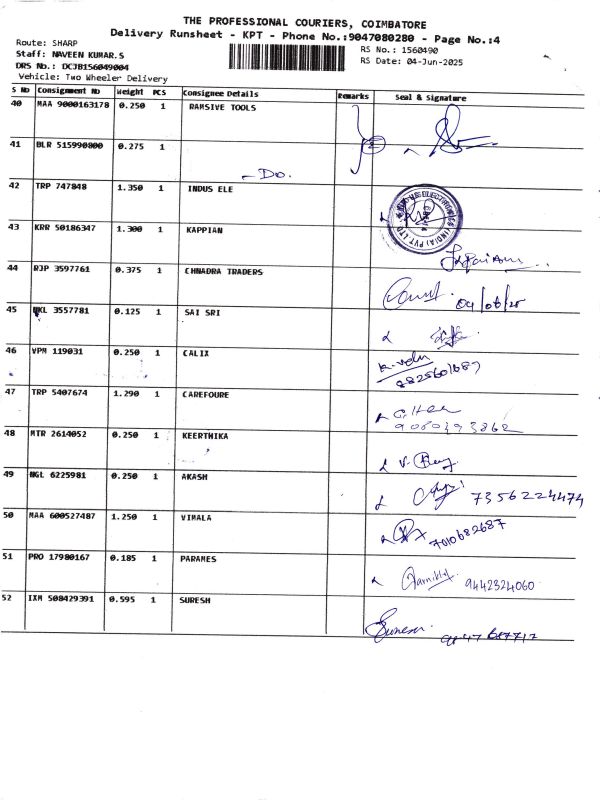 THE PROFESSIONAL COURIERS, COIMBATORE
Delivery Runsheet - KPT - Phone No.:9047080280 - Page No.:4
Route: SHARP
Staff: NAVEEN KUMAR.S
DRS No.: DCJB156049004
Vehicle: Two Wheeler Delivery
RS No.: 1560490
RS Date: 04-Jun-2025
S No Consignment No Weight PCS Consignee Details Remarks Seal & Signature
40 MAA 9000163178 0.250 1 RAMSIVE TOOLS
41 BLR 515990800 0.275 1
- Do.
42 TRP 747848 1.350 1 INDUS ELE
43 KRR 50186347 1.300 1 KAPPIAN
44 RJP 3597761 0.375 1 CHNADRA TRADERS
04/06/25
45 NKL 3557781 0.125 1 SAI SRI
46 VPM 119031 0.250 1 CALIX
47 TRP 5407674 1.290 1 CAREFOURE
48 MTR 2614052 0.250 1 KEERTHIKA
49 NGL 6225981 0.250 1 AKASH
7356224474
50 MAA 600527487 1.250 1 VIMALA
7010682687
51 PRO 17980167 0.185 1 PARAMES
9442324060
52 IXM 508429391 0.595 1 SURESH